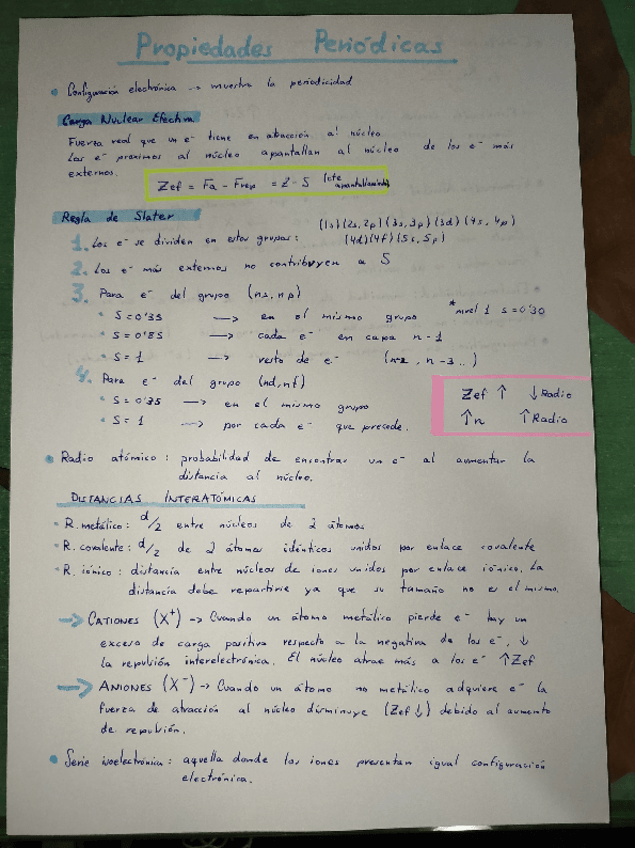 Propiedades Periódicas
• Configuración electrónica → muestra la periodicidad
Carga Nuclear Efectiva
Fuerza real que un e⁻ tiene en atracción al núcleo
Los e⁻ proximos al núcleo apantallan al núcleo de los e⁻ más
externos.
Zef = Fa - Frep = Z - S (cte apantallamiento)
Regla de Slater
1. Los e⁻ se dividen en estos grupos: (1s)(2s,2p)(3s,3p)(3d)(4s,4p)
(4d)(4f)(5s,5p)
2. Los e⁻ más externos no contribuyen a S
3. Para e⁻ del grupo (ns,np)
• S=0'35 → en el mismo grupo *nivel 1 s=0'30
• S=0'85 → cada e⁻ en capa n-1
• S=1 → resto de e⁻ (n-2, n-3...)
4. Para e⁻ del grupo (nd,nf)
• S=0'35 → en el mismo grupo
• S=1 → por cada e⁻ que precede.
Zef ↑ ↓ Radio
↑n ↑ Radio
• Radio atómico: probabilidad de encontrar un e⁻ al aumentar la
distancia al núcleo.
DISTANCIAS INTERATÓMICAS
• R. metálico: d/2 entre núcleos de 2 átomos
• R. covalente: d/2 de 2 átomos idénticos unidos por enlace covalente
• R. iónico: distancia entre núcleos de iones unidos por enlace iónico. La
distancia debe repartirse ya que su tamaño no es el mismo.
→ CATIONES (X⁺) → Cuando un átomo metálico pierde e⁻ hay un
exceso de carga positiva respecto a la negativa de los e⁻. ↓
la repulsión interelectrónica. El núcleo atrae más a los e⁻ ↑Zef
→ ANIONES (X⁻) → Cuando un átomo no metálico adquiere e⁻ la
fuerza de atracción al núcleo disminuye (Zef↓) debido al aumento
de repulsión.
• Serie isoelectrónica: aquella donde los iones presentan igual configuración
electrónica.